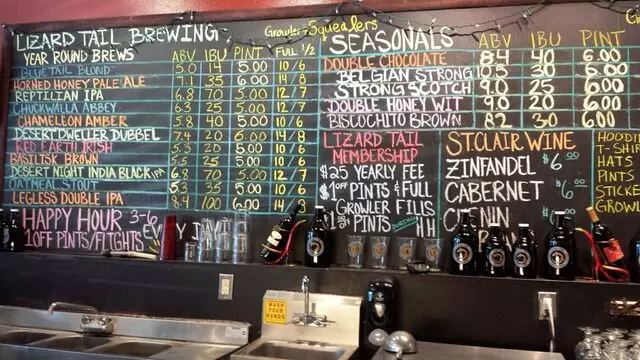 LIZARD TAIL BREWING
Growler + Squealers
YEAR ROUND BREWS ABV IBU PINT FULL 1/2
BLUE TAIL BLOND 5.0 14 5.00 10/6
HORNED HONEY PALE ALE 7.1 35 6.00 14/8
REPTILIAN IPA 6.8 70 5.00 12/7
CHUCKWALLA ABBEY 6.3 25 5.00 12/7
CHAMELEON AMBER 5.8 40 5.00 10/6
DESERT DWELLER DUBBEL 7.4 20 6.00 14/8
RED EARTH IRISH 5.3 20 5.00 10/6
BASILISK BROWN 5.5 25 5.00 10/6
DESERT NIGHT INDIA BLACK IPA 6.8 70 5.00 12/7
OATMEAL STOUT 5.3 35 5.00 10/6
LEGLESS DOUBLE IPA 8.4 100 6.00 14/8
HAPPY HOUR 3-6
1 OFF PINTS/FLIGHTS
SEASONALS ABV IBU PINT
DOUBLE CHOCOLATE 8.4 40 6.00
BELGIAN STRONG 10.5 30 6.00
STRONG SCOTCH 9.0 25 6.00
DOUBLE HONEY WIT 9.0 20 6.00
BISCOCHITO BROWN 8.2 30 6.00
LIZARD TAIL
MEMBERSHIP
$25 YEARLY FEE
$1 OFF PINTS & FULL
GROWLER FILLS
PINTS DURING HH
ST.CLAIR WINE
ZINFANDEL $6.00
CABERNET $6.00
HOODI
T-SHIR
HATS
PINTS
STICKE
GROWL
WASH
YOUR
HANDS